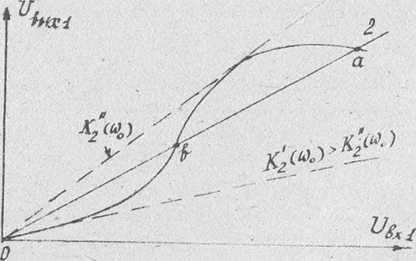 Uвых1
2
a
K₂″(ω₀)
в
K₂′(ω₀) > K₂″(ω₀)
Uвх1
0